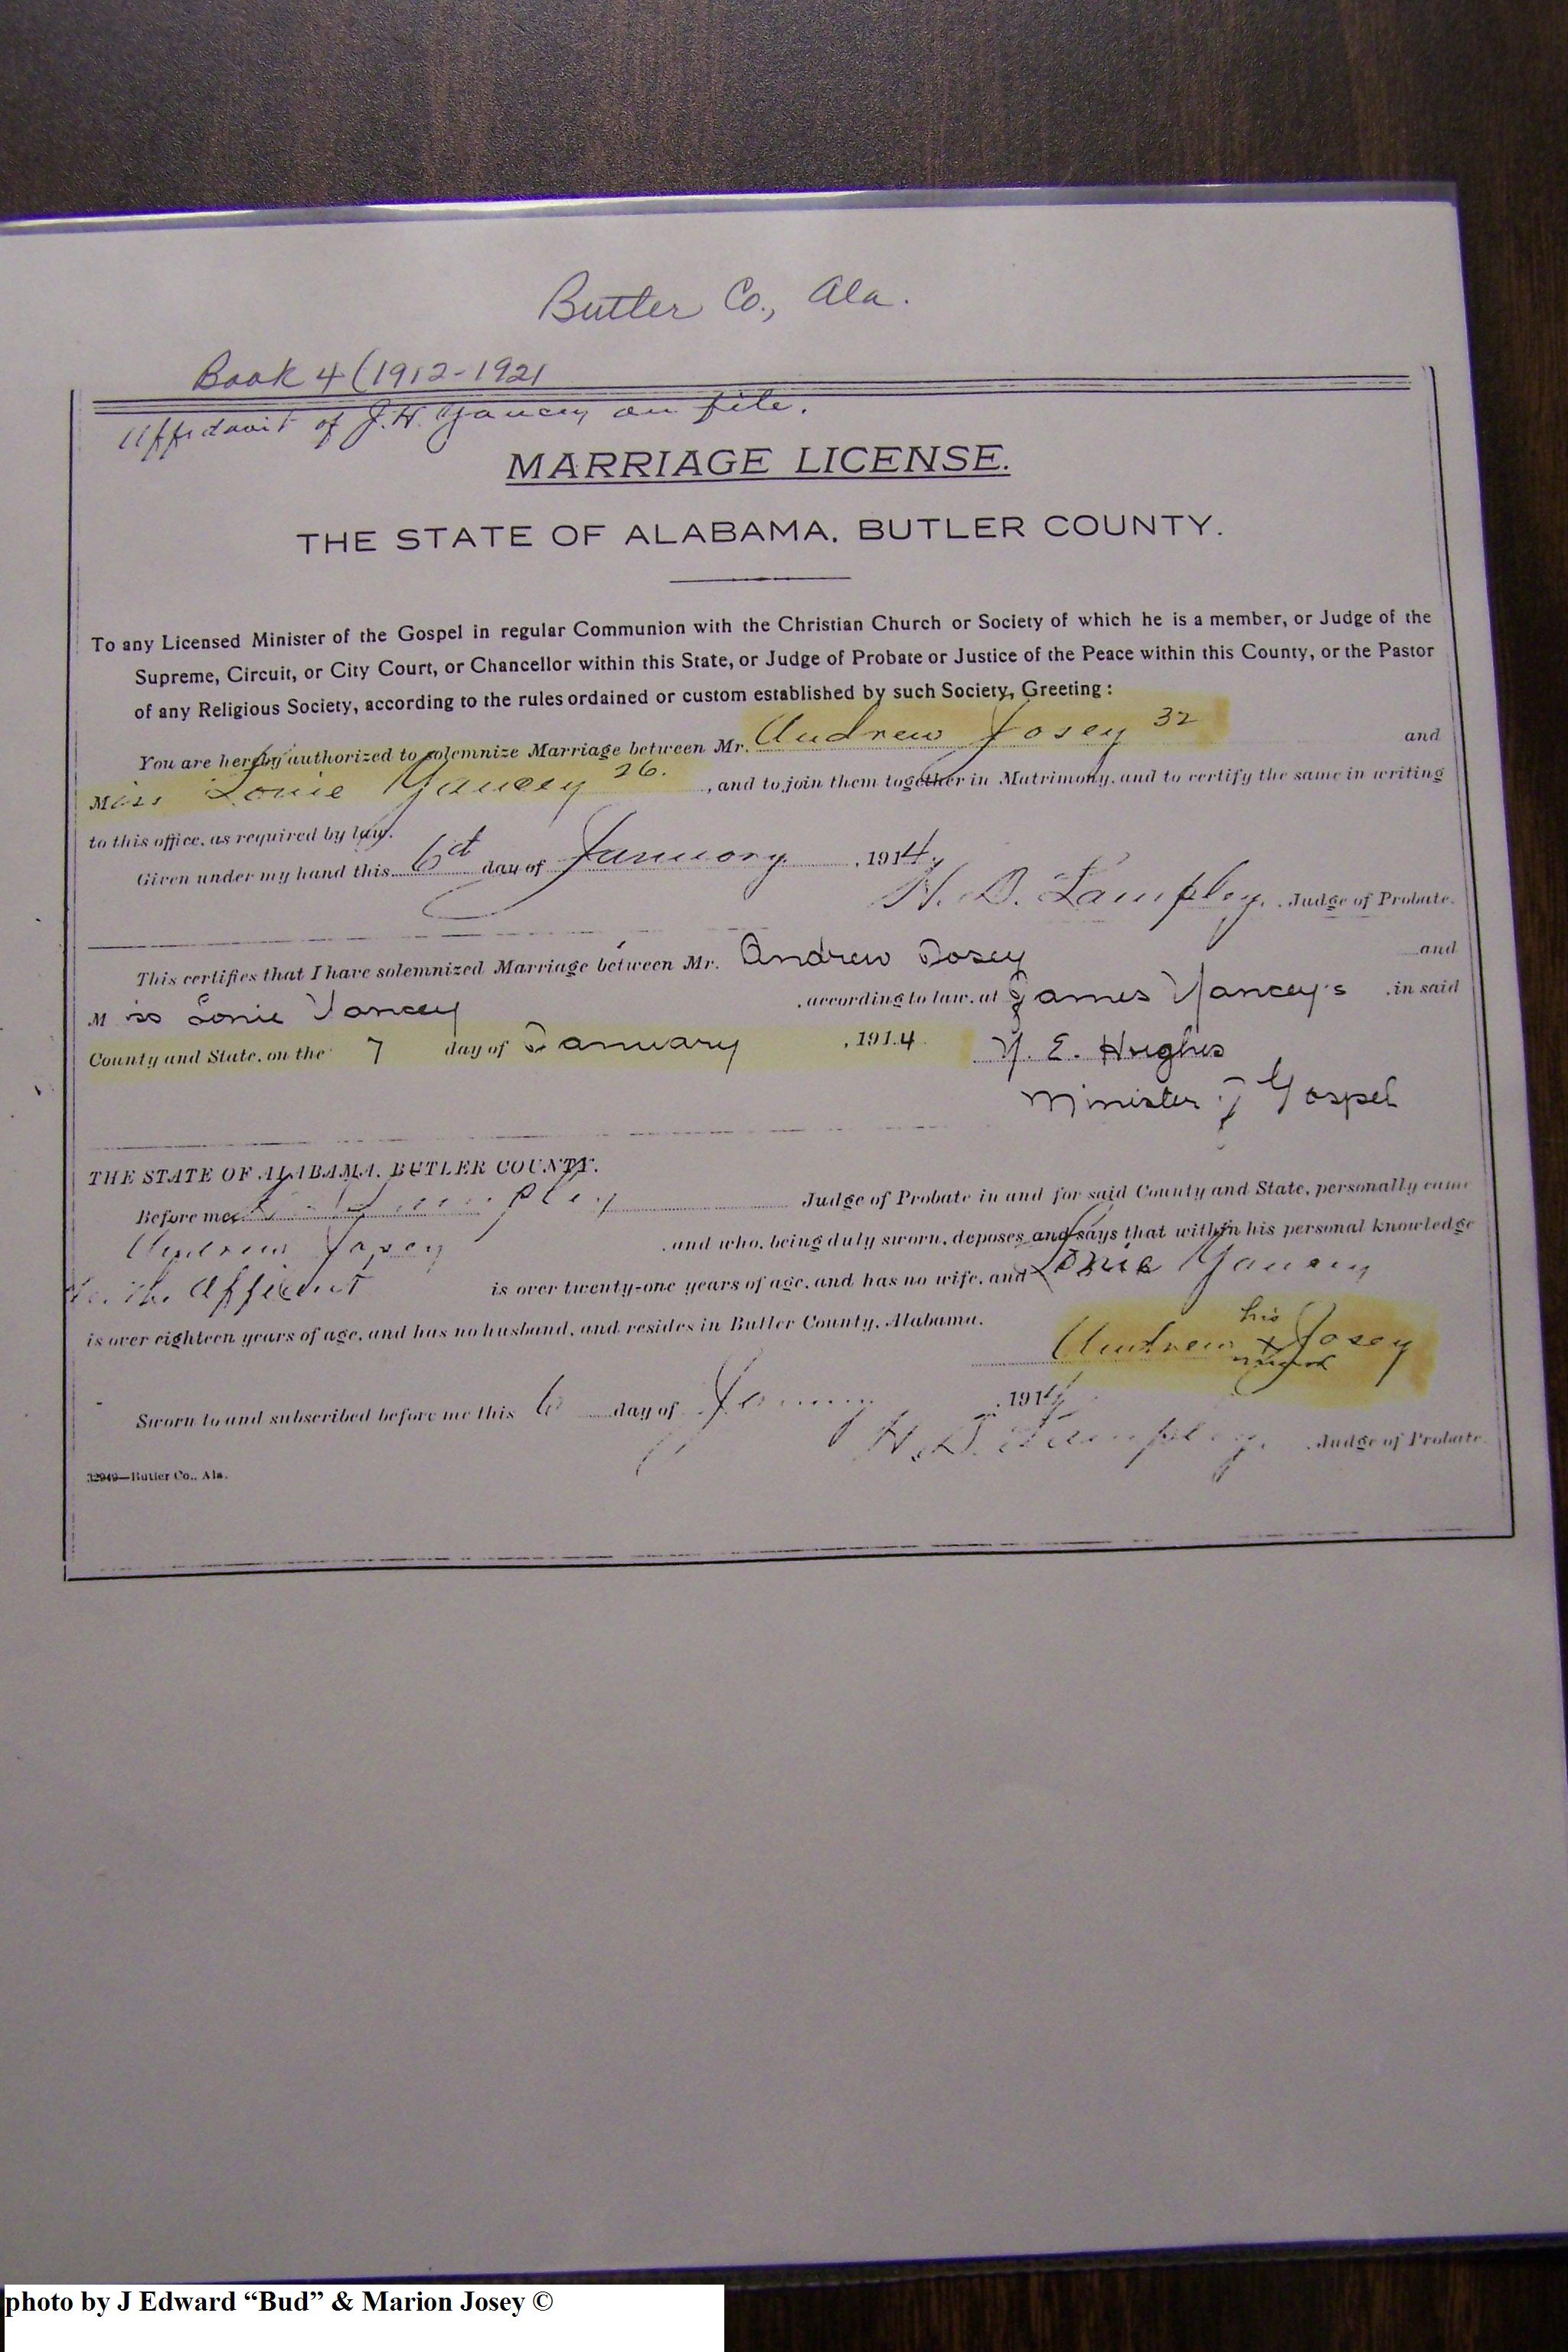 Butler Co., Ala.
Book 4 (1912-1921
Affidavit of J.H. Yancey on file.
MARRIAGE LICENSE.
THE STATE OF ALABAMA, BUTLER COUNTY.
To any Licensed Minister of the Gospel in regular Communion with the Christian Church or Society of which he is a member, or Judge of the
Supreme, Circuit, or City Court, or Chancellor within this State, or Judge of Probate or Justice of the Peace within this County, or the Pastor
of any Religious Society, according to the rules ordained or custom established by such Society, Greeting:
You are hereby authorized to solemnize Marriage between Mr. Andrew Josey 32 and
Miss Lonie Yancey 26. , and to join them together in Matrimony, and to certify the same in writing
to this office, as required by law.
Given under my hand this 6d day of January , 1914.
H. D. Lampley. , Judge of Probate.
This certifies that I have solemnized Marriage between Mr. Andrew Josey and
Miss Lonie Yancey , according to law, at James Yancey's , in said
County and State, on the 7 day of January , 1914 E. Hughes
Minister of Gospel
THE STATE OF ALABAMA, BUTLER COUNTY.
Before me Lampley Judge of Probate in and for said County and State, personally came
Andrew Josey , and who, being duly sworn, deposes and says that within his personal knowledge
the Affient is over twenty-one years of age, and has no wife, and Lonie Yancey
is over eighteen years of age, and has no husband, and resides in Butler County, Alabama.
his
Andrew x Josey
mark
Sworn to and subscribed before me this 6 day of January , 1914
H. D. Lampley. , Judge of Probate.
32949—Butler Co., Ala.
photo by J Edward “Bud” & Marion Josey ©